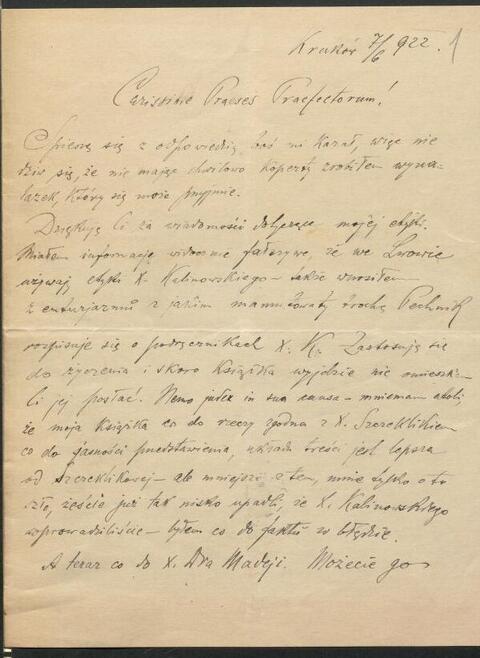 Kraków 7/6 922. 1
Carissime Praeses Praefectorum!
Spieszę się z odpowiedzią, boś mi kazał, więc nie
dziw się, że nie mając chwilowo koperty zrobiłem wyna-
lazek, który się może przyjmie.
Dziękuję Ci za wiadomości dotyczące mojej etyki.
Miałem informacje widocznie fałszywe, że we Lwowie
używają etyki X. Kalinowskiego – takie wnosiłem
z entuzjazmu z jakim trochę Pechnik
rozpisuje się o podręcznikach X. K. Zastosuję się
do życzenia i skoro książka wyjdzie nie omieszkam
Ci jej posłać. Nemo judex in sua causa – mniemam atoli,
że moja książka co do rzeczy zgodna z X. Szczeklikiem
co do jasności przedstawienia, układu treści jest lepsza
od Szczeklikowej – ale mniejsza z tem, mnie tylko o to
szło, żeście już tak nisko upadli, że X. Kalinowskiego
wprowadziliście – byłem co do faktu w błędzie.
A teraz co do X. Dra Madeji. Możecie go